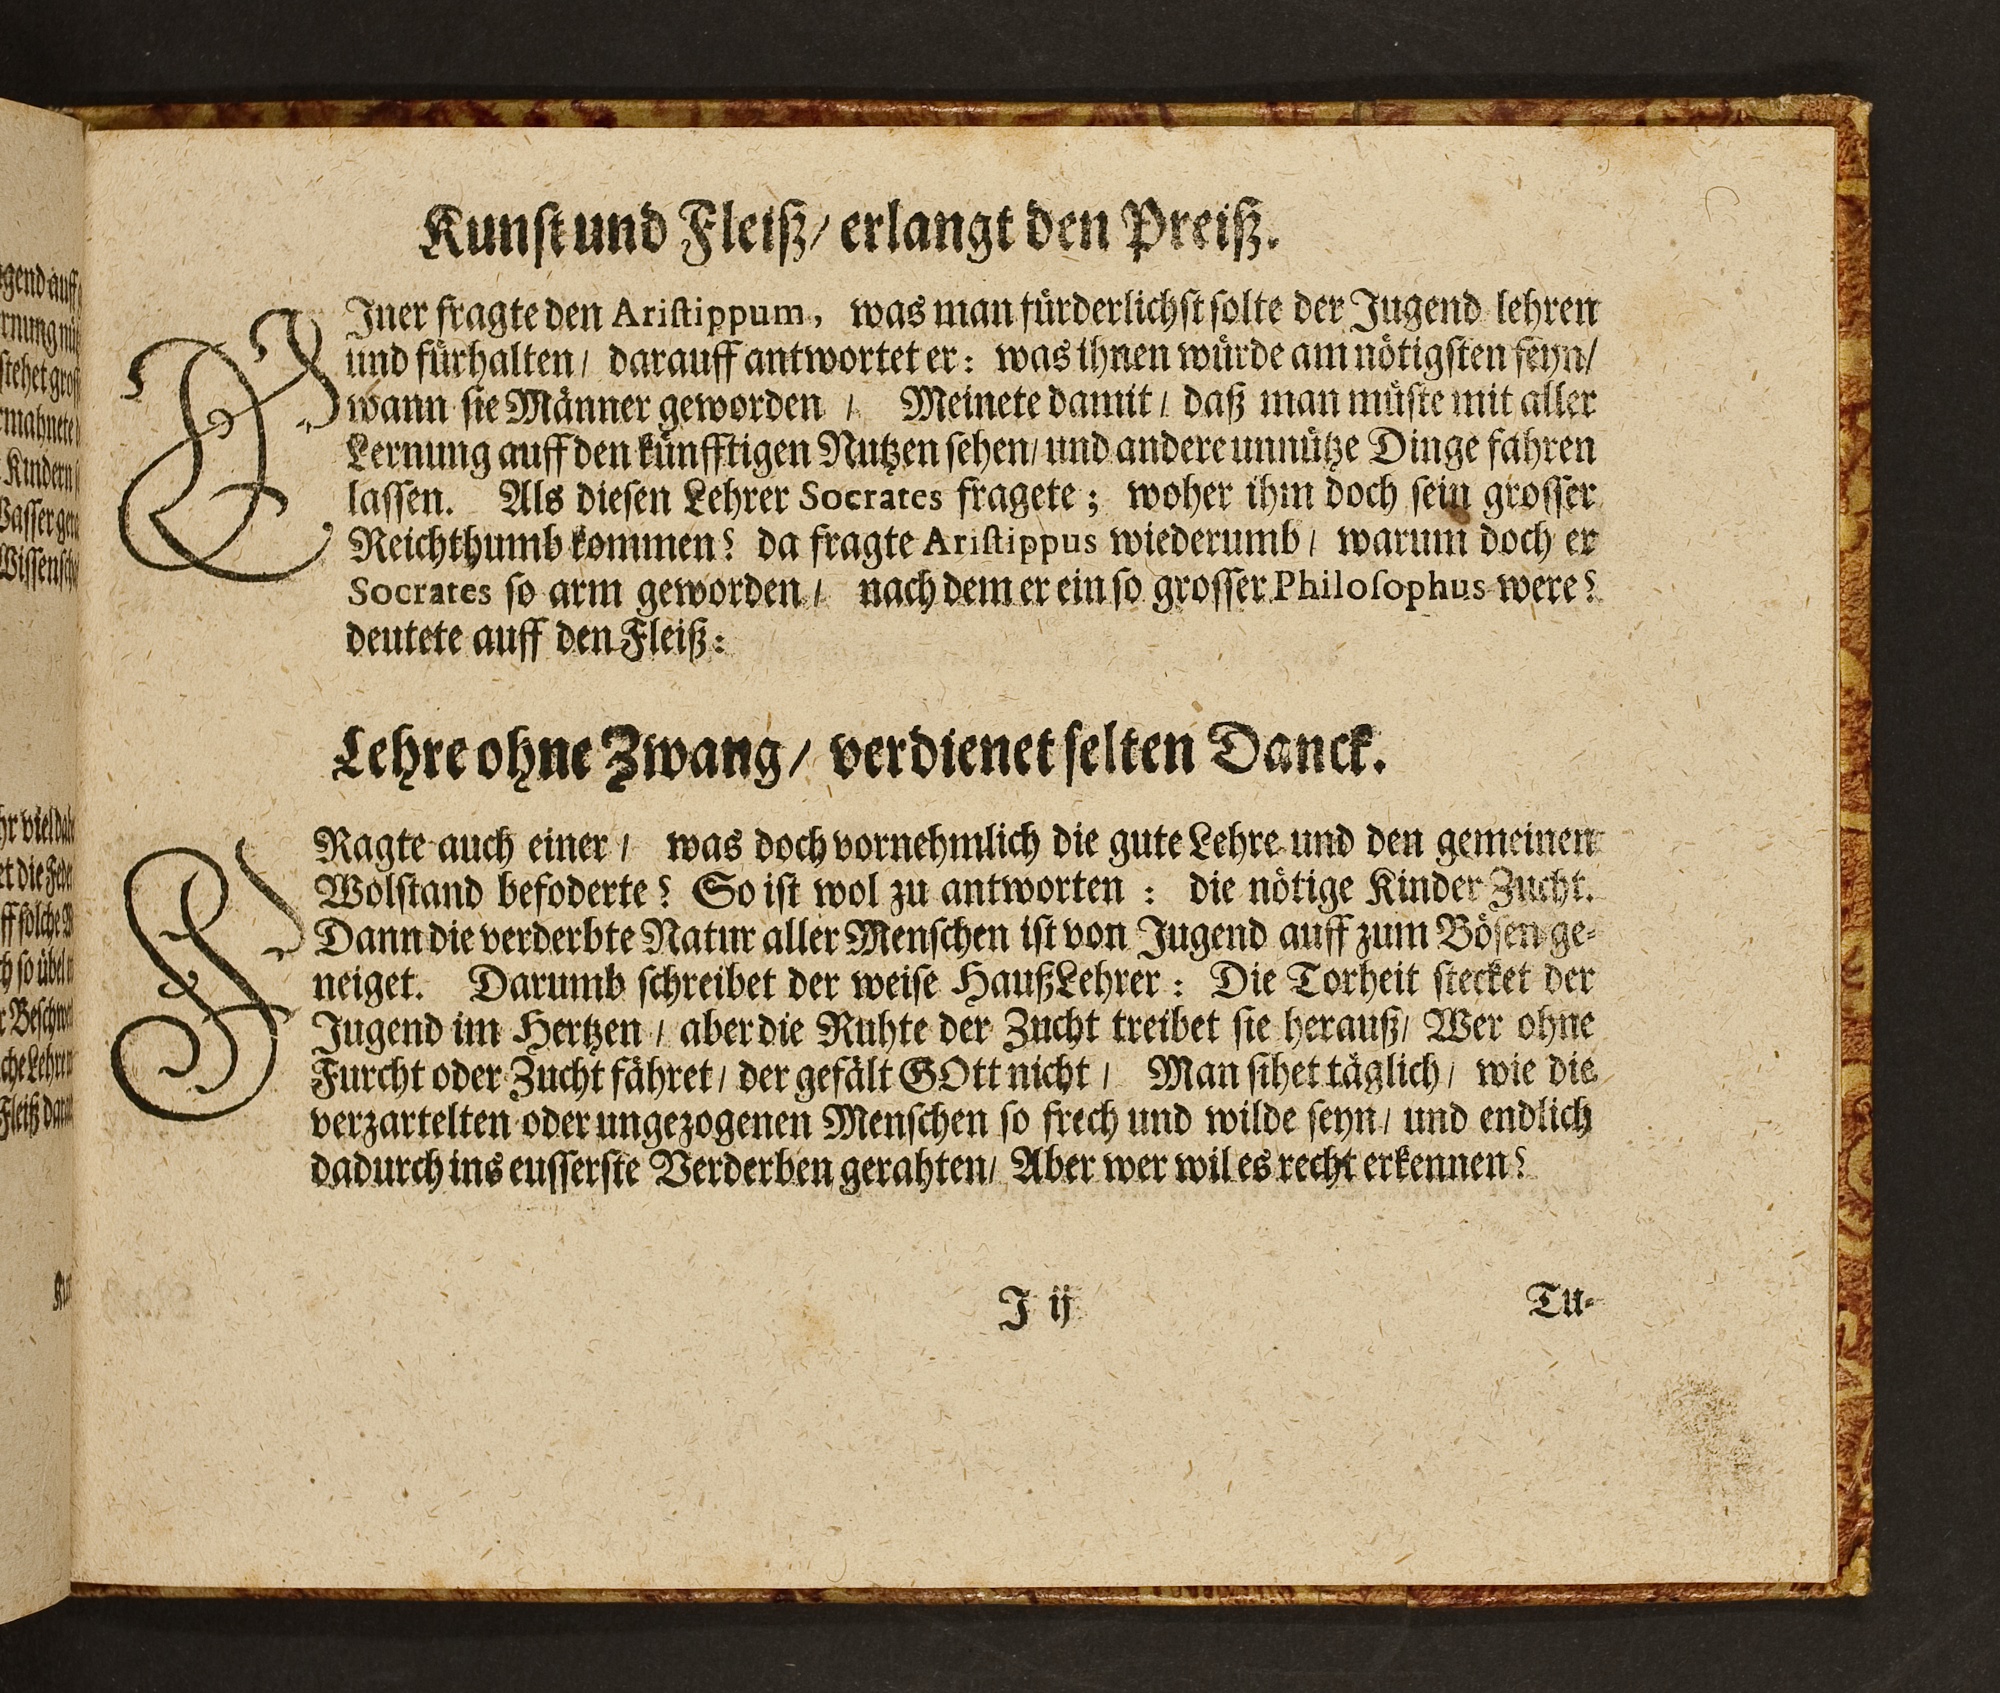 Kunst und Fleiß/ erlangt den Preiß.
EJner fragte den Aristippum, was man fürderlichst solte der Jugend lehren
und fürhalten/ darauff antwortet er: was ihnen würde am nötigsten seyn/
wann sie Männer geworden / Meinete damit/ daß man müste mit aller
Lernung auff den künfftigen Nutzen sehen/ und andere unnütze Dinge fahren
lassen. Als diesen Lehrer Socrates fragete; woher ihm doch sein grosser
Reichthumb kommen? da fragte Aristippus wiederumb/ warum doch er
Socrates so arm geworden/ nach dem er ein so grosser Philosophus were?
deutete auff den Fleiß:
Lehre ohne Zwang/ verdienet selten Danck.
FRagte auch einer/ was doch vornehmlich die gute Lehre und den gemeinen
Wolstand befoderte? So ist wol zu antworten: die nötige Kinder Zucht.
Dann die verderbte Natur aller Menschen ist von Jugend auff zum Bösen ge-
neiget. Darumb schreibet der weise HaußLehrer: Die Torheit stecket der
Jugend im Hertzen/ aber die Ruhte der Zucht treibet sie herauß/ Wer ohne
Furcht oder Zucht fähret/ der gefält GOtt nicht/ Man sihet täglich/ wie die
verzartelten oder ungezogenen Menschen so frech und wilde seyn/ und endlich
dadurch ins eusserste Verderben gerahten/ Aber wer wil es recht erkennen?
J ij
Tu-